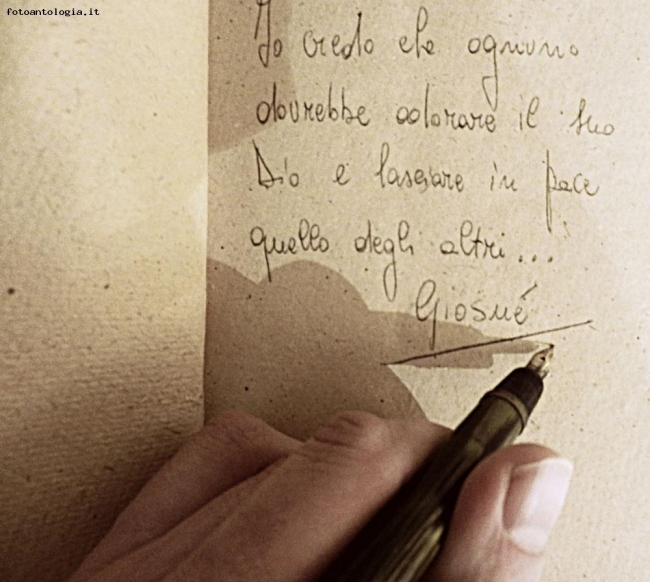 fotoantologia.it
Io credo che ognuno
dovrebbe adorare il suo
Dio e lasciare in pace
quello degli altri...
Giosué